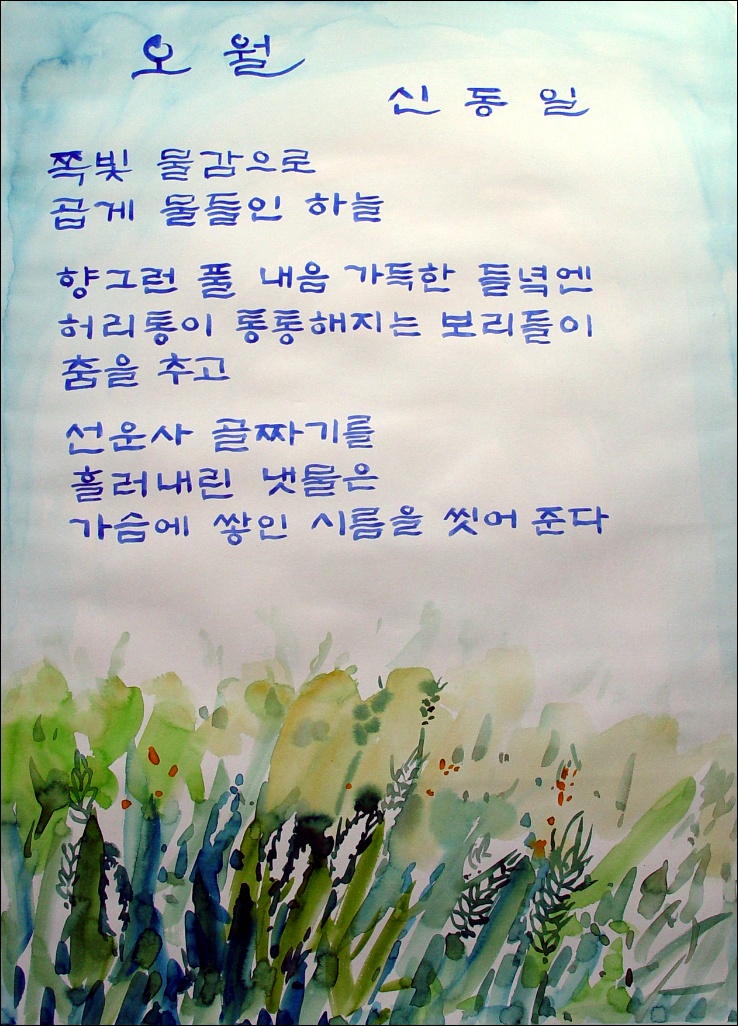 오 월
신 동 일
쪽빛 물감으로
곱게 물들인 하늘
향그런 풀 내음 가득한 들녘엔
허리통이 통통해지는 보리들이
춤을 추고
선운사 골짜기를
흘러내린 냇물은
가슴에 쌓인 시름을 씻어 준다